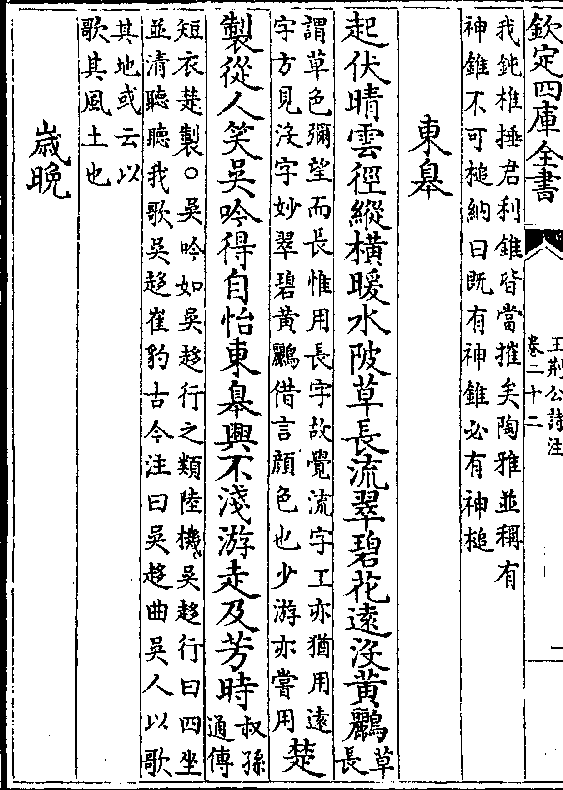 欽定四庫全書
王荊公詩注
卷二十二
一
我鈍椎捶君利錐皆當摧矣陶雅並稱有
神錐不可槌納曰既有神錐必有神槌
東皋
起伏晴雲徑縱橫暖水陂草長流翠碧花遠沒黃鸝
草
長
謂草色彌望而長惟用長字故覺流字工亦猶用遠
字方見沒字妙翠碧黃鸝借言顏色也少游亦嘗用
楚
製從人笑吳吟得自怡東皋興不淺游走及芳時
叔孫
通傳
短衣楚製○吳吟如吳趍行之類陸機吳趍行曰四坐
並清聽聽我歌吳趍崔豹古今注曰吳趍曲吳人以歌
其地或云以
歌其風土也
歲晚